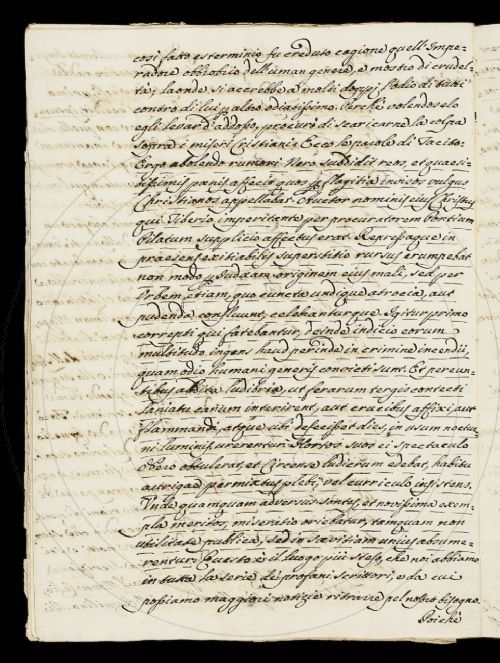 così fatto esterminio fu creduto cagione quell'Impe-
radore obbrobrio dell'uman genere, e mostro di crudel-
tà; laonde si accrebbe a molti doppi l'odio di tutti
contro di lui p altro odiatissimo. Perchè volendoselo
egli levar d'addosso, procurò di scaricarne la colpa
sopra i miseri cristiani: Ecco le parole di Tacito:
Ergo abolendo rumori Nero subdidit reos, et quaesi-
tissimis poenis affecit quos p flagitia invisos vulgus
Christianos appellabat. Auctor nominis eius Christus
qui Tiberio imperitante per procuratorem Pontium
Pilatum supplicio affectus erat. Repressaque in
praesens exitiabilis superstitio rursus erumpebat
non modo p Iudaeam originem eius mali, sed per
Urbem etiam, quo cuncta undique atrocia, aut
pudenda confluunt, celebranturque. Igitur primo
correpti qui fatebantur, deinde indicio eorum
multitudo ingens haud perinde in crimine incendii,
quam odio humani generis convicti sunt. Et pereun-
tibus addita ludibria, ut ferarum tergis contecti
laniatu canum interirent, aut crucibus affixi, aut
flammandi, atque ubi defecisset dies, in usum noctur-
ni luminis urerentur. Hortos suos ei spectaculo
Nero obtulerat, et Circense ludicrum edebat, habitu
aurigae permixtus plebi, vel curriculo insistens.
Unde quamquam adversus sontes, et novissima exem-
pla meritos, miseratio oriebatur, tamquam non
utilitate publica, sed in saevitiam unius absume-
rentur. Questo è il luogo più steso, che noi abbiamo
in tutta la serie dei profani scrittori, e da cui
possiamo maggiori notizie ritrarre pel nostro bisogno.
Poichè